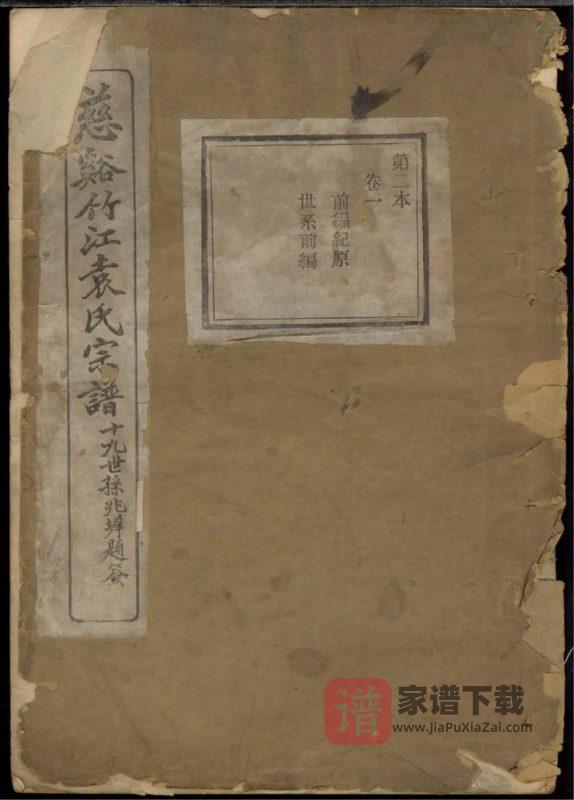 慈谿竹江袁氏宗譜
十九世孫兆墀題簽
第二本
卷一
前編紀原
世系前編
谱
家谱下载
www.JiaPuXiaZai.com